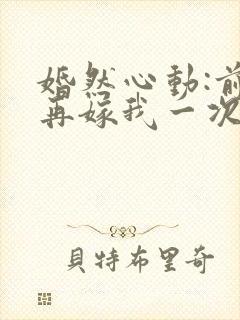 婚然心動:前
再嫁我一次
貝特布里奇